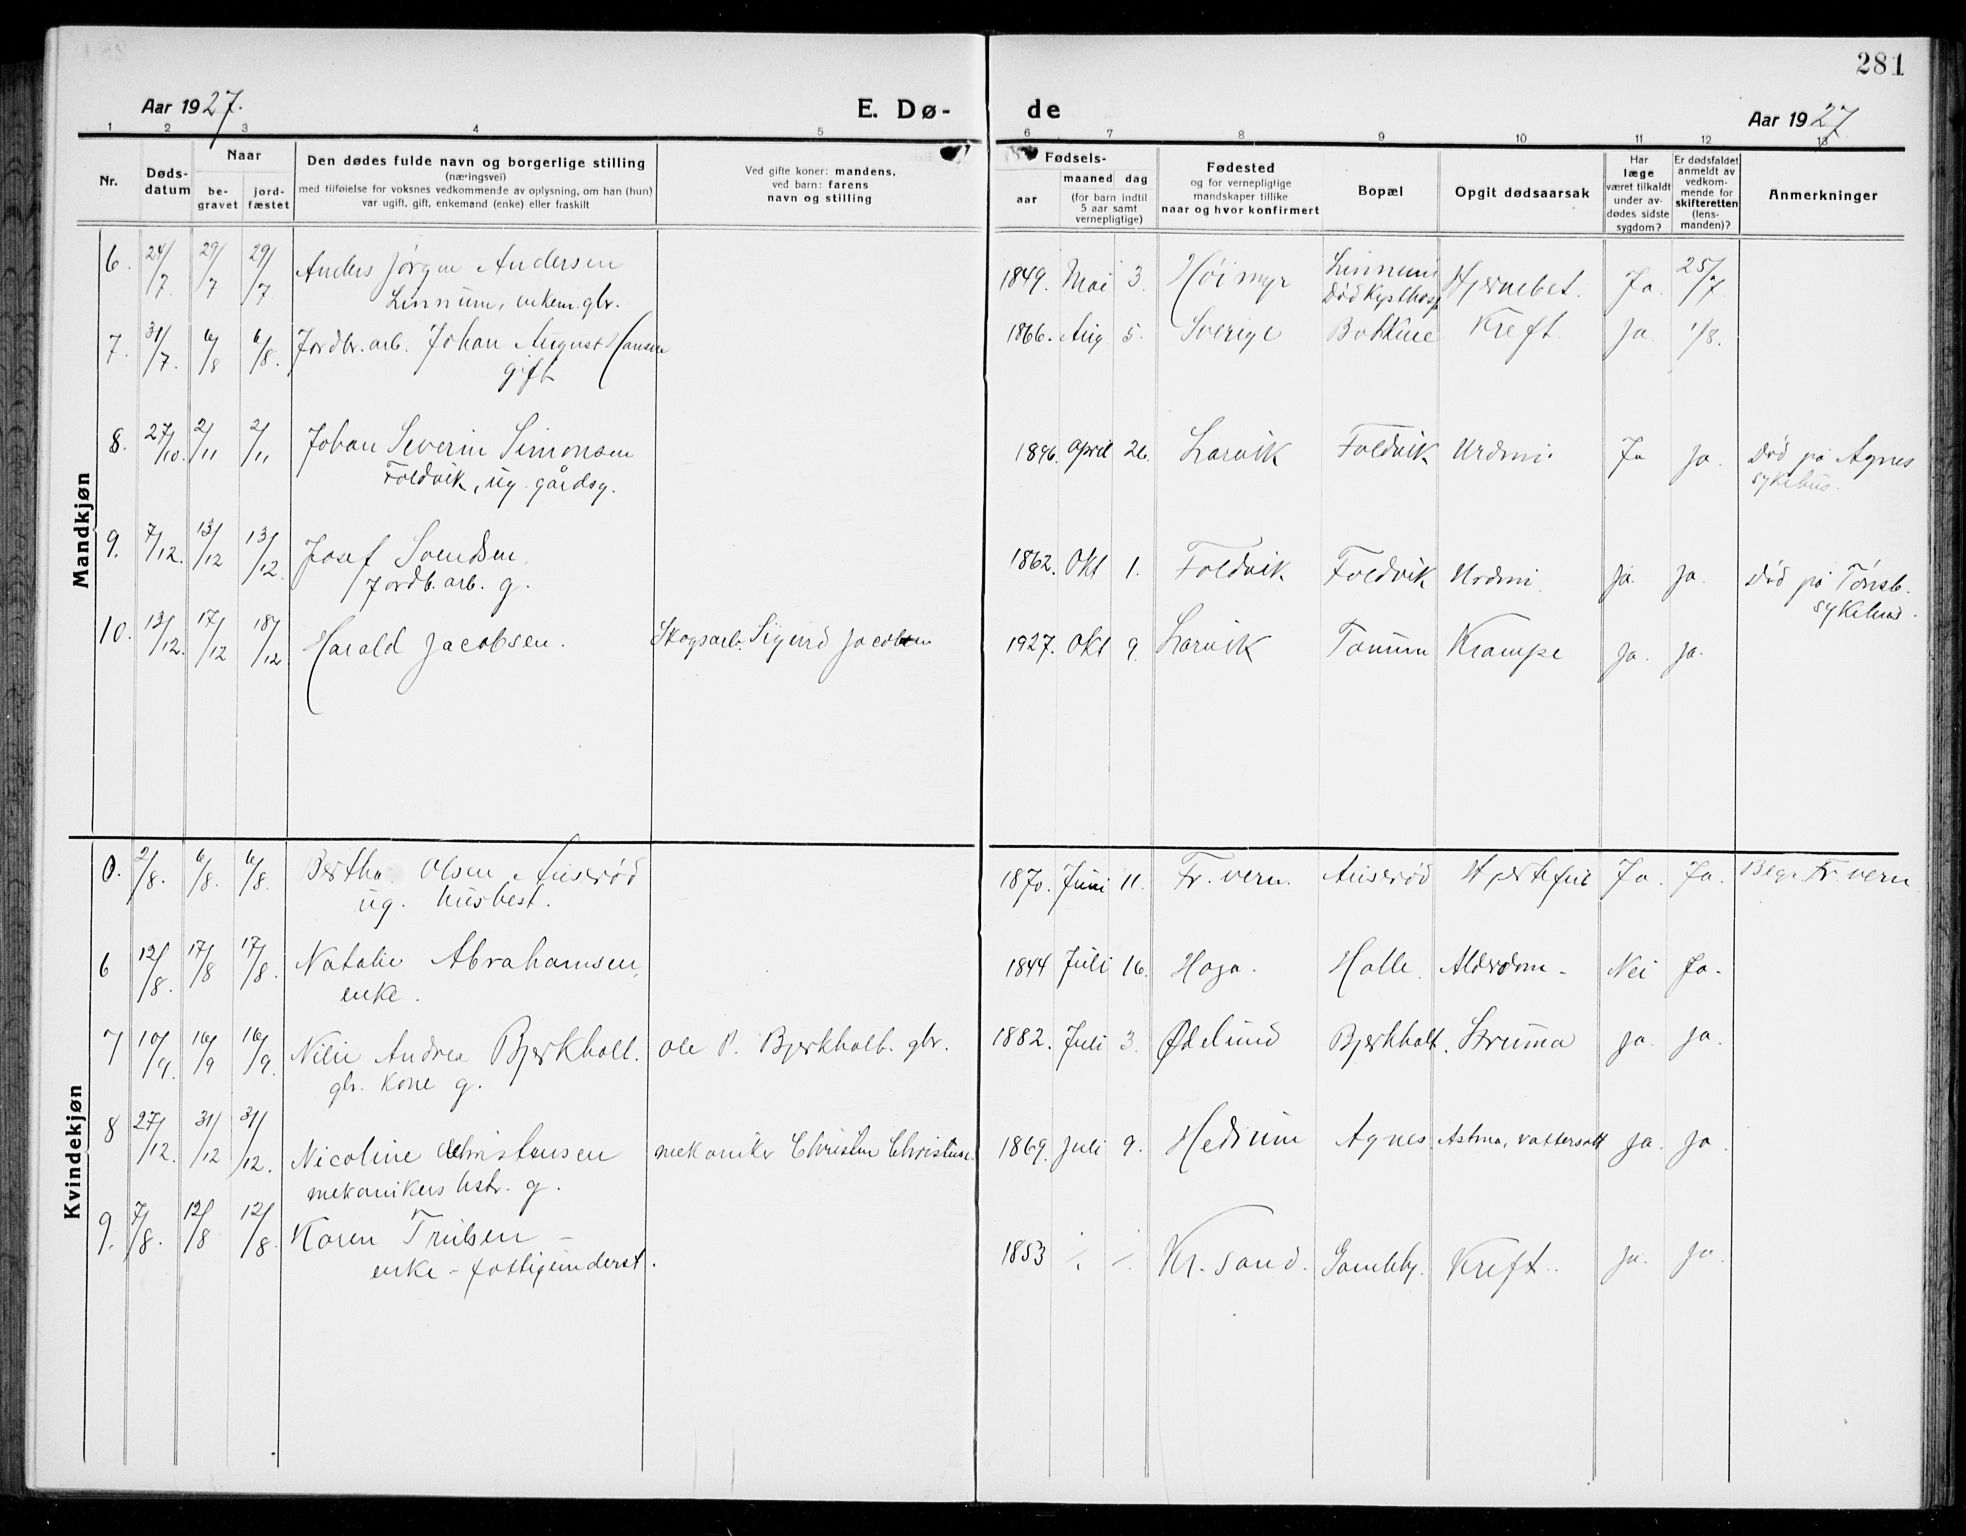 281
Aar 1927.
E. Dø-
de
Aar 1927
1 2 3 4 5 6 7 8 9 10 11 12 13
Nr.
Døds-
datum
Naar
be-
gravet
jord-
fæstet
Den dødes fulde navn og borgerlige stilling
(næringsvei)
med tilføielse for voksnes vedkommende av oplysning, om han (hun)
var ugift, gift, enkemand (enke) eller fraskilt
Ved gifte koner: mandens,
ved barn: farens
navn og stilling
Fødsels-
aar
maaned
dag
(for barn indtil
5 aar samt
vernepligtige)
Fødested
og for vernepligtige
mandskaper tillike
naar og hvor konfirmert
Bopæl
Opgit dødsaarsak
Har
læge
været tilkaldt
under av-
dødes sidste
sygdom?
Er dødsfaldet
anmeldt av
vedkom-
mende for
skifteretten
(lens-
manden)?
Anmerkninger
Mandkjøn
6. 24/7 29/7 29/7 Anders Jørgen Andersen 1849. Mai 3. Høimyr Linnum Hjernebet. Ja. 25/7
Linnum, enkem. gbr. Død Kysthosp
7. 31/7. 6/8 6/8. Jordbr. arb. Johan August Hansen 1866. Aug 5. Sverige Kreft. Ja. 1/8.
gift
8. 27/10. 2/11 2/11 Johan Severin Simonsen 1896. April 26. Larvik Foldvik Ja Ja. Død på Agnes
Foldvik, ug. gårdsg. sykehus.
9. 7/12. 13/12 13/12. Josef Svendsen 1862. Okt 1. Foldvik Foldvik Ja. Ja. Død på Tønsb.
Jordb. arb. g. sykehus.
10. 13/12. 17/12 18/12 Harald Jacobsen. Skogsarb. Sigurd Jacobsen 1927. Okt 9. Larvik Tanum Krampe Ja. Ja.
Kvindekjøn
0. 2/8. 6/8. 6/8. Bertha Olsen Auserød 1870. Juni 11. Fr. vern. Auserød Hjertefeil Ja. Ja. Begr. Fr. vern
ug. husbest.
6 12/8. 17/8 17/8. Natalie Abrahamsen, 1844 Juli 16. Haga. Halle. Alderdom Nei Ja.
enke.
7 10/9. 16/9 16/9. Nilie Andrea Bjerkholt. Ole P. Bjerkholt. gbr. 1882. Juli 3. Ødelund Bjerkholt. Struma Ja. Ja.
gbr. kone g.
8 27/12. 31/12 31/12. Nicoline Christensen mekaniker Christen Christensen 1869. Juli 9. Hedrum Agnes Astma, vattersott Ja. Ja.
mekanikers hstr. g.
9. 7/8. 12/8 12/8. Karen Trulsen – 1853 Kr. sand. Gamleby. Kreft. Ja. Ja.
enke – fattigunderst.